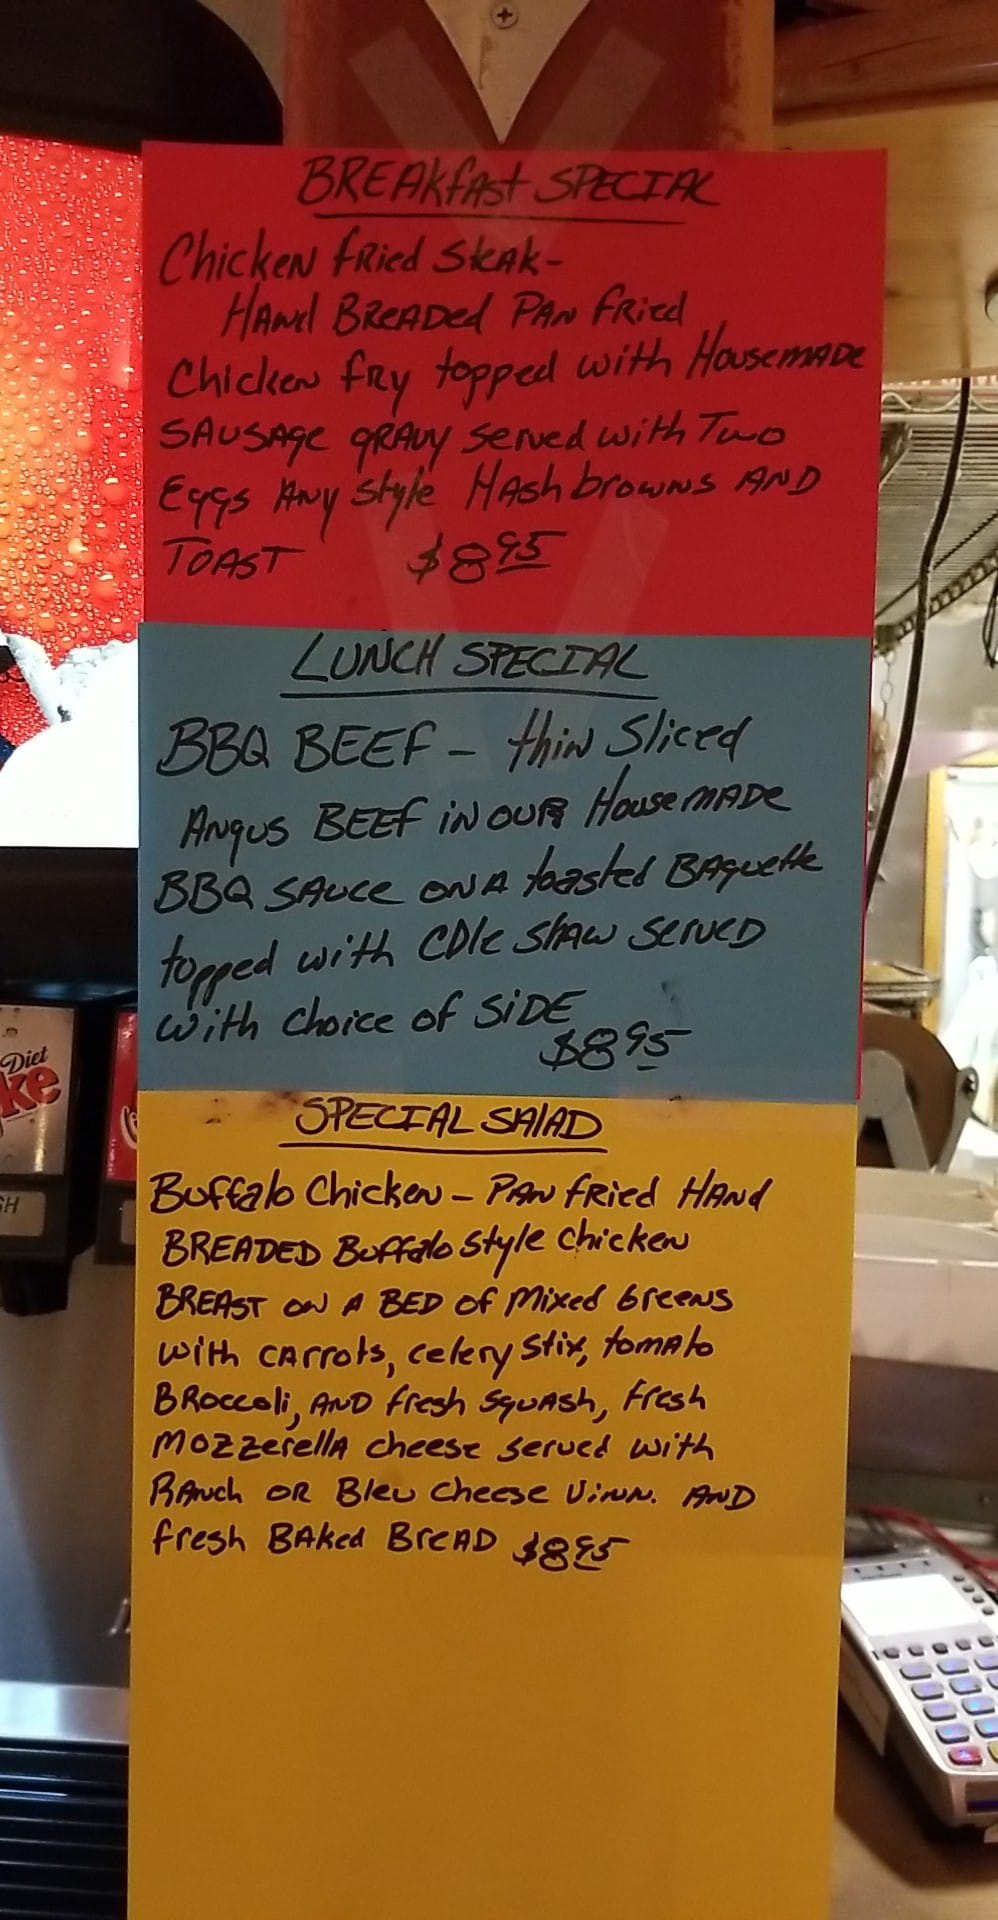 BREAKfAst SPECIAL
Chicken fried Steak-
Hand BREADED PAN fried
Chicken fry topped with HousemADE
SAUSAge gRAvy served with Two
Eggs Any style Hashbrowns AND
TOAST $8.95
LUNCH SPECIAL
BBQ BEEF - thin Sliced
Angus BEEf iN OUR HousemADE
BBQ SAUCE ON A toasted BAguette
topped with COle Slaw served
with choice of SiDE
$8.95
SPECIAL SAlAD
Buffalo Chicken - PAN fRied HANd
BREADED Buffalo Style chicken
BREAST ON A BED of Mixed Greens
with cARRots, celery Stix, tomAto
BRoccoli, AND fresh SquAsh, fresh
MOZZerellA cheese served with
RANch OR Bleu cheese ViNN. AND
fresh BAked BreAD $8.95
Diet
ke
SH